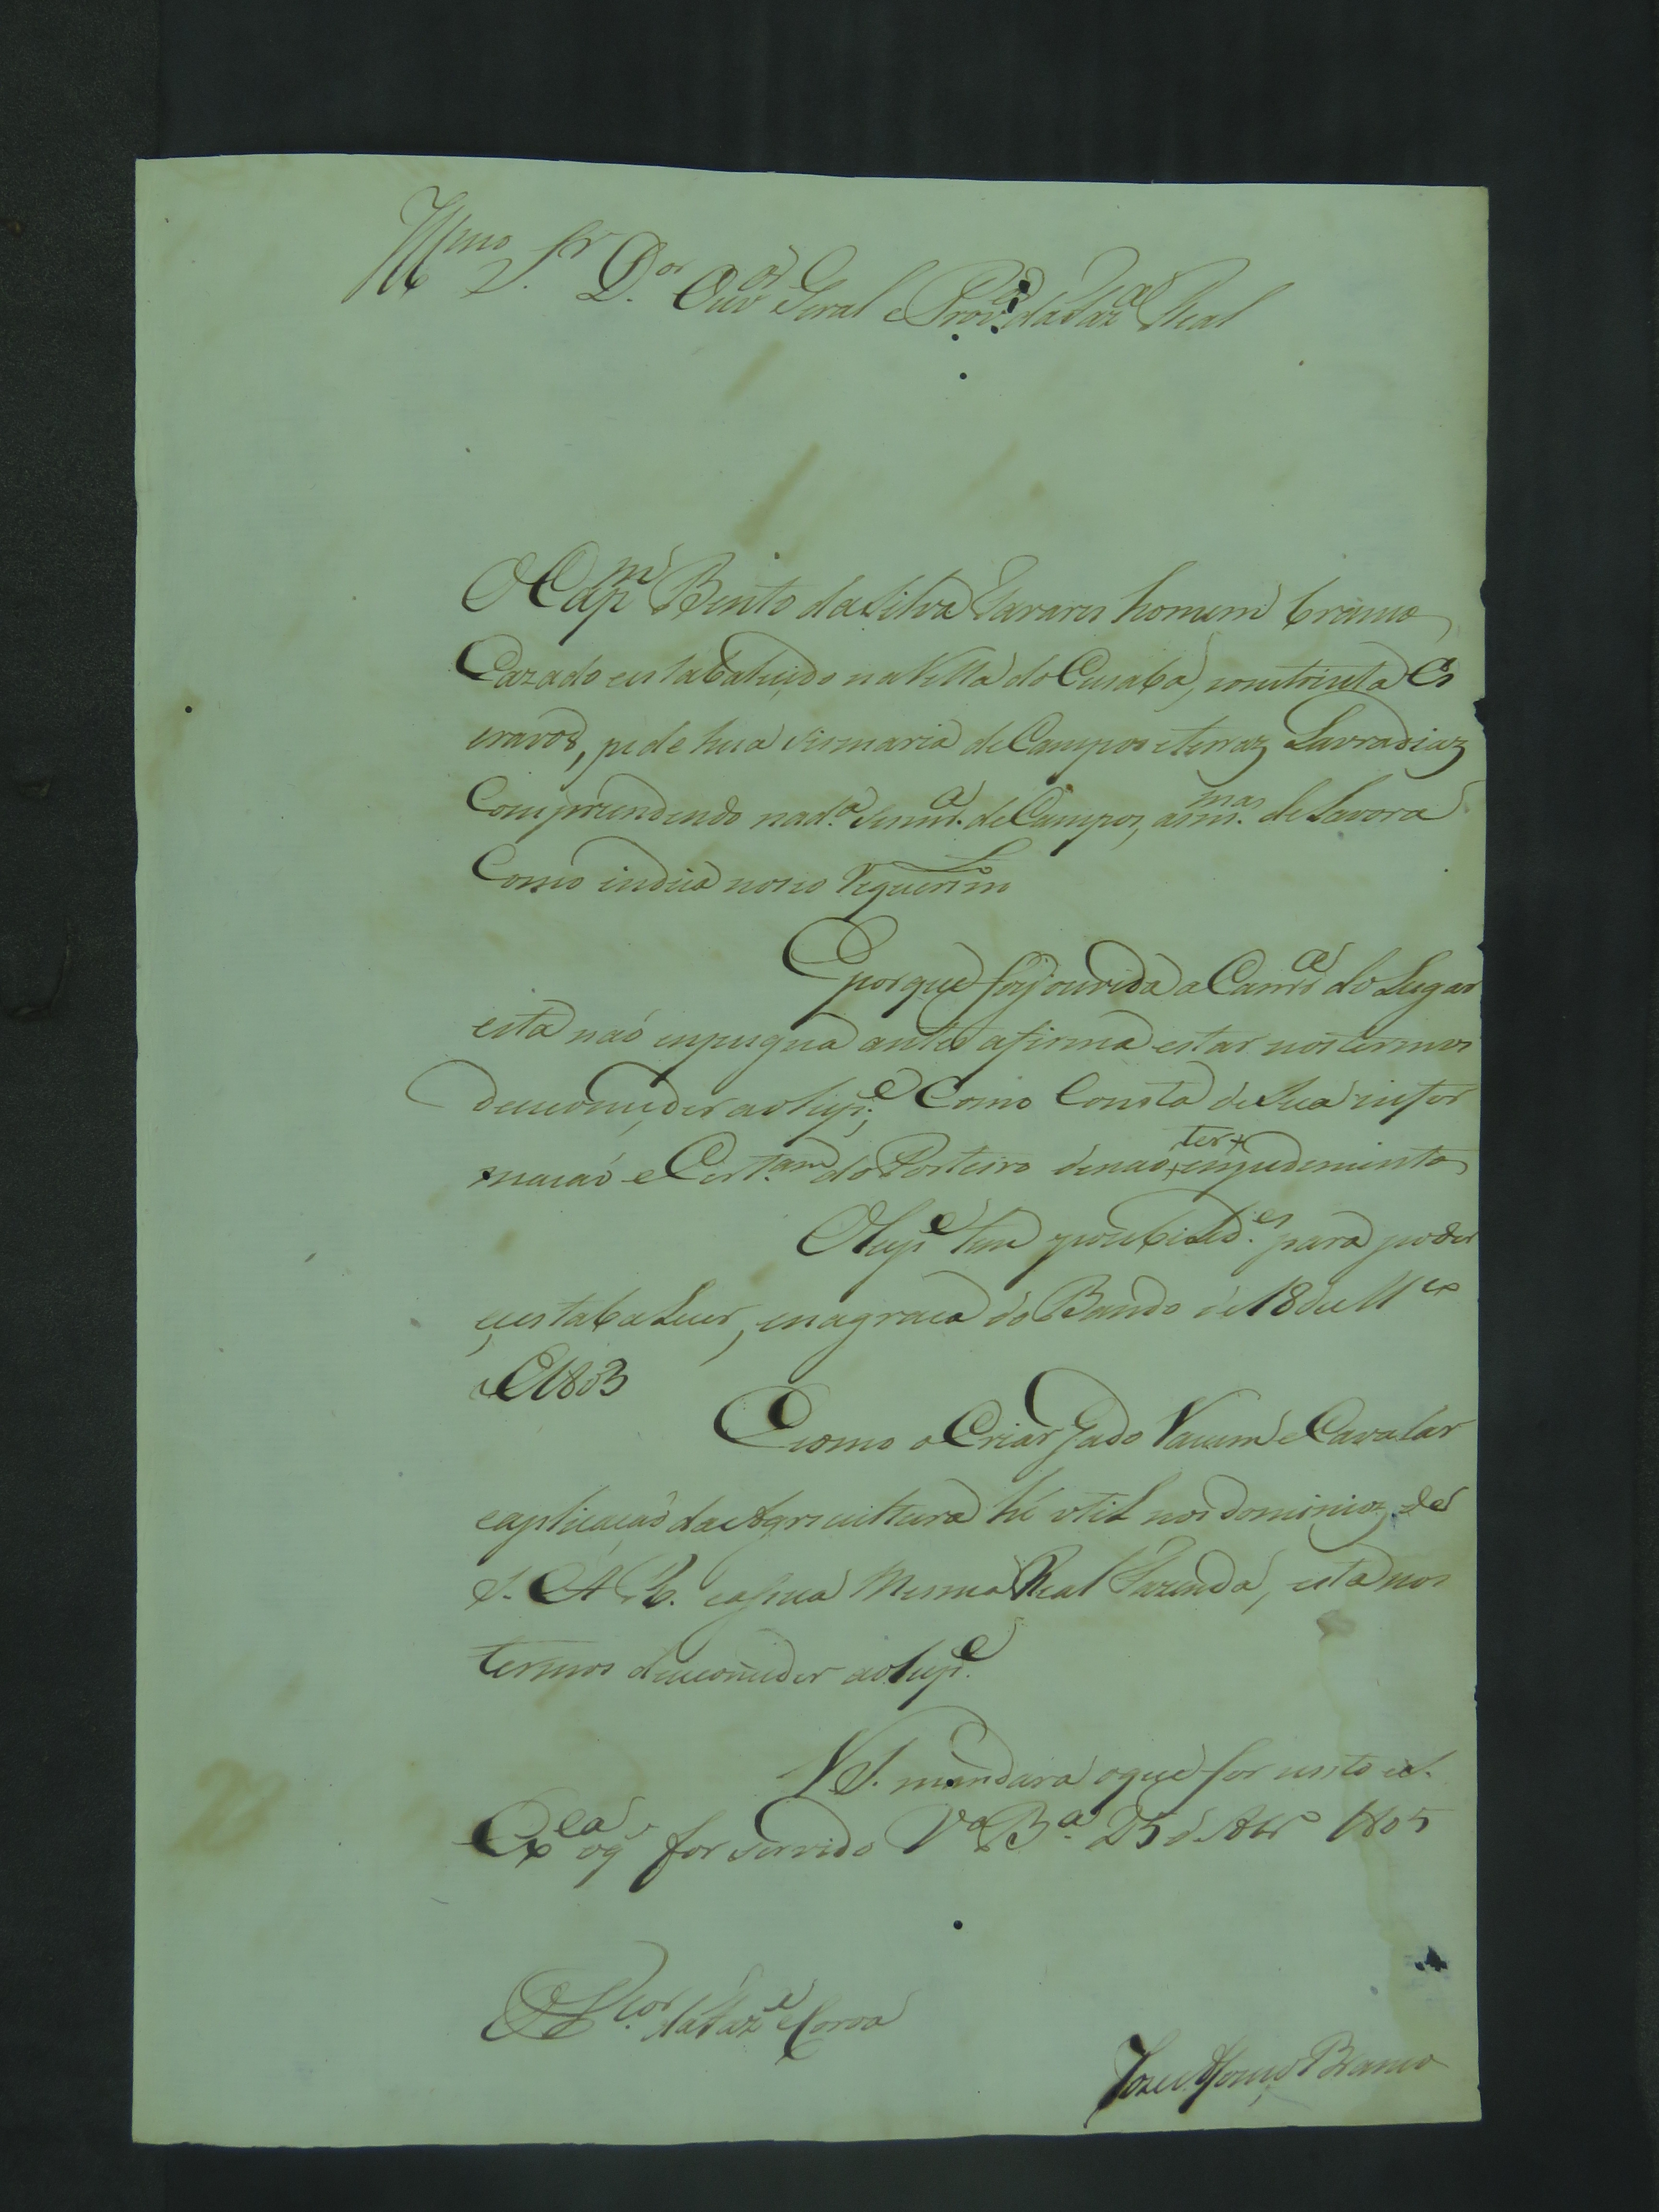 Illmo Sr. D.or Ouv.or Geral e Prov.or da Faz.a Real
O Cap.m Bento da Silva Tavares homem branco
Cazado estabalecido na Villa do Cuiaba, com trinta Es
cravos, pede hua sismaria de Campos e terras Lavradias
Comprendendo na d.a semr.a de Campos, as m.mas de Lavora
Como indica no seo Requerim.to
E porque foy ouvida a Camr.a do Lugar
esta naó inpugna antes afirma estar nos termos
de se conçeder ao sup.e, Como Consta de Sua infor
macaó e Cert.am do Porteiro de nao ter enpedimento
O sup.e tem posebilid.es para poder
estabaLecer, e na graça do Bando de 18 de
de 1803
E como o Criar gado Vacum e Cavalar
e aplicacaó da Agricultura hé util nos dominios de
S. A. R. e a sua Mesma Real Fazenda, esta nos
termos de se conceder ao sup.e
V S. mandara o que for justo e S.
Ex.cia o q for servido V.a B.a 25 d Abr.o 1805
O P.cor da Faz.e Coroa
Joze Afonço Branco